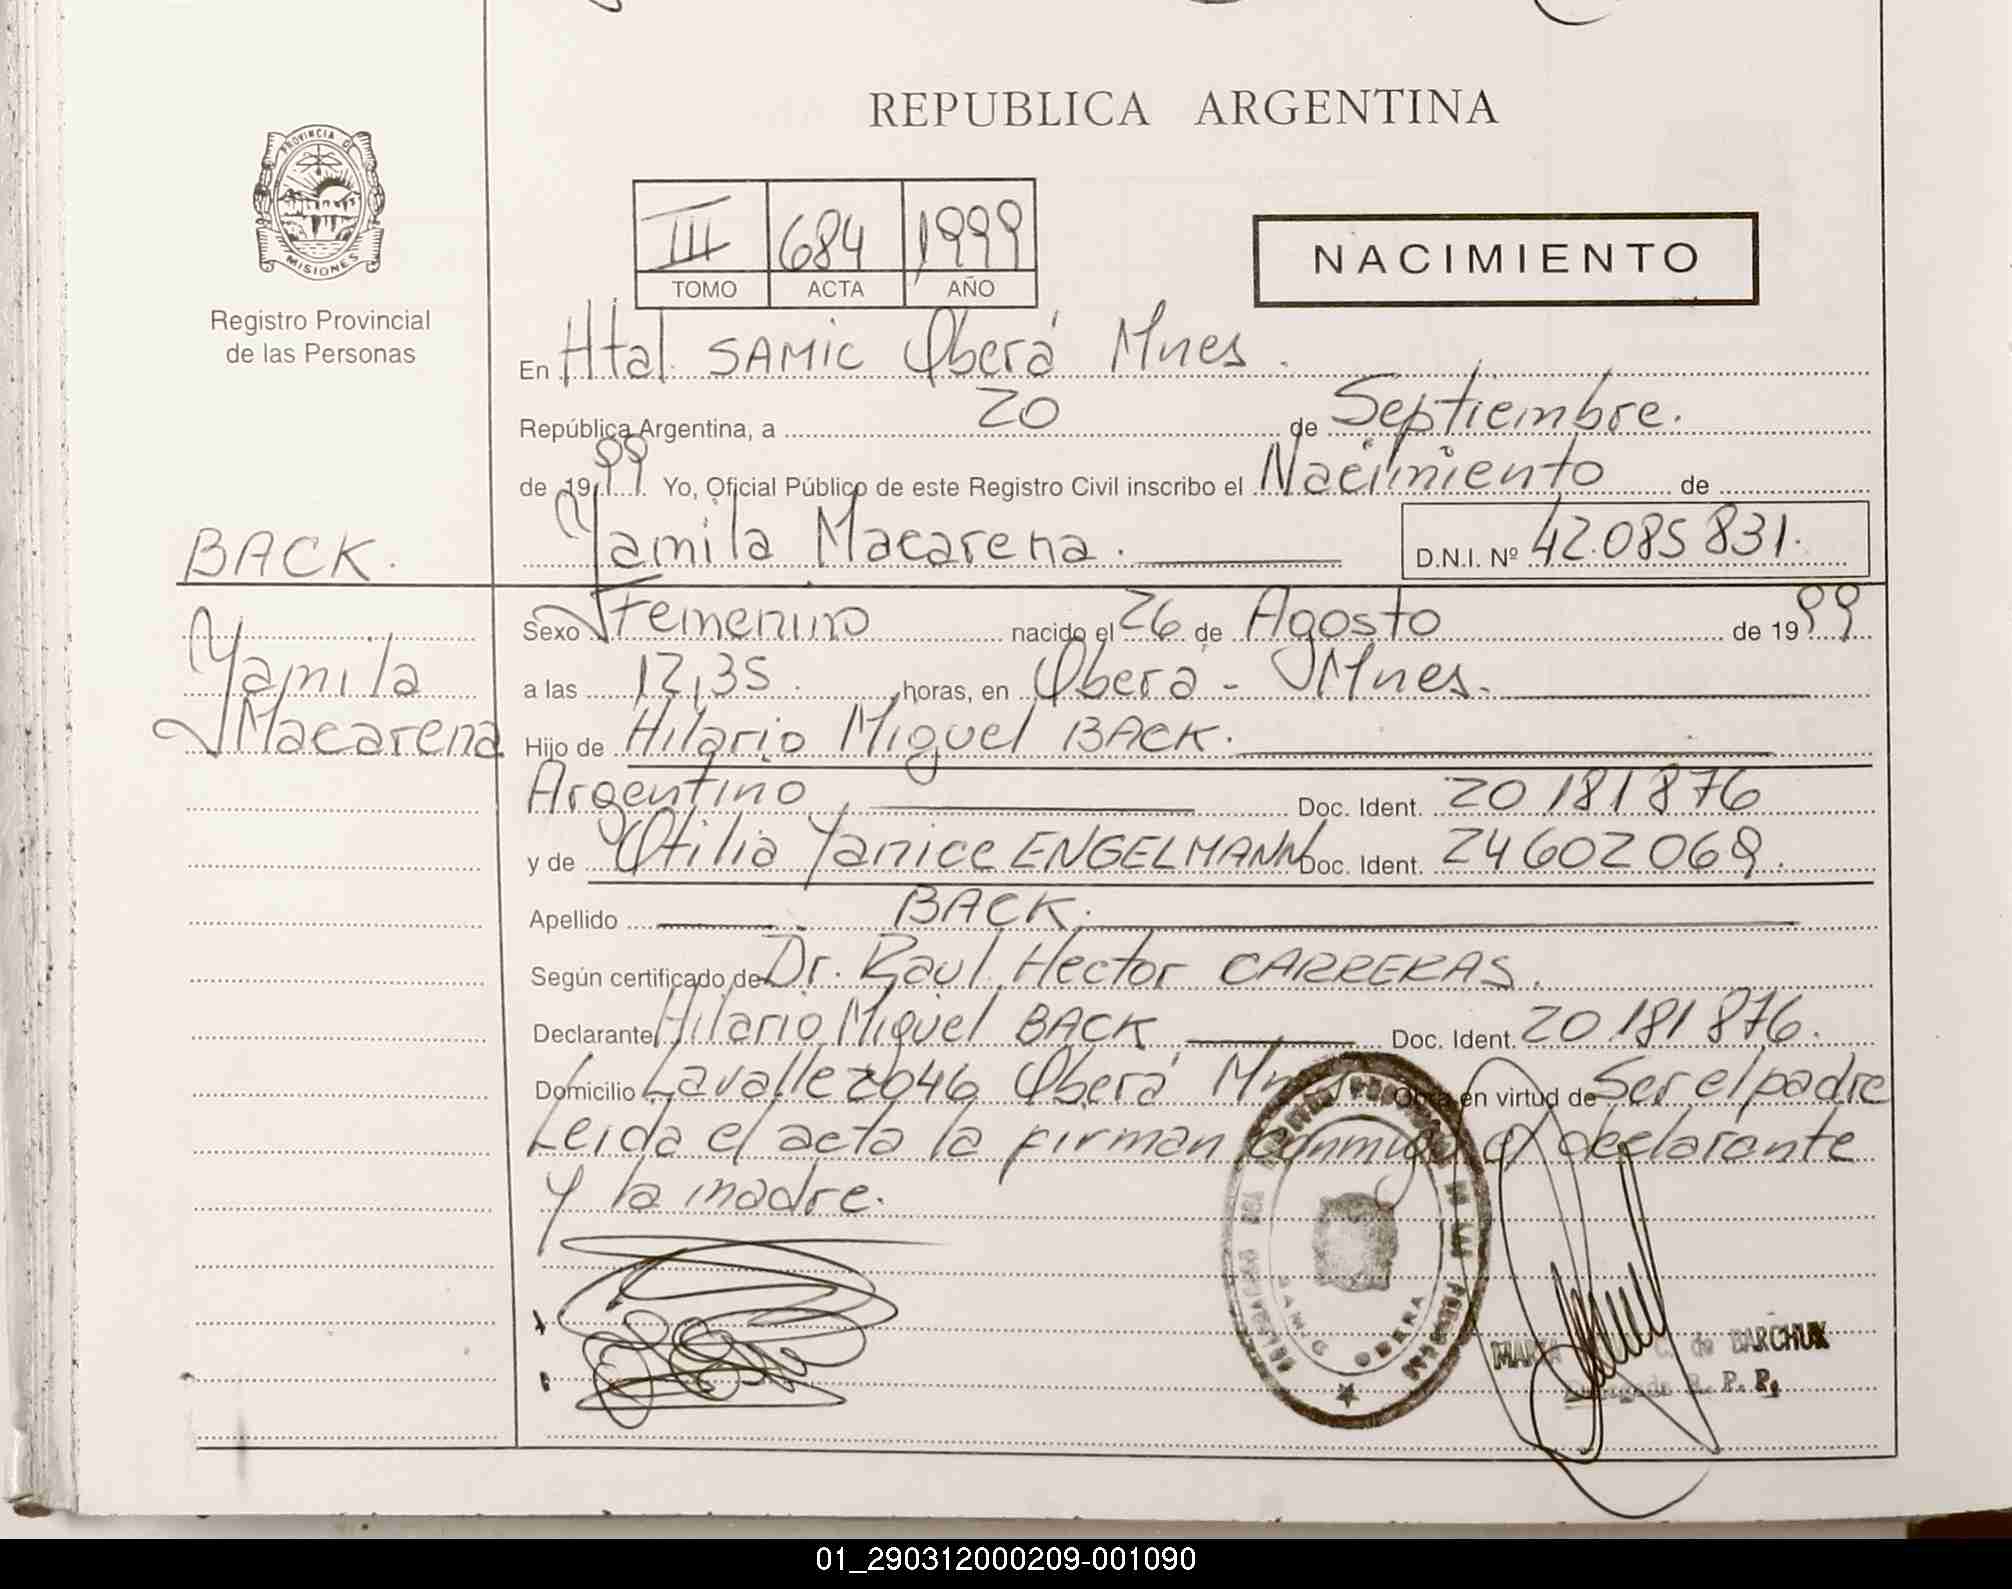 REPUBLICA ARGENTINA
PROVINCIA DE
MISIONES
Registro Provincial
de las Personas
III 684 1999
TOMO ACTA AÑO
NACIMIENTO
En Htal. SAMIC Oberá Mnes.
República Argentina, a 20 de Septiembre.
de 1999 Yo, Oficial Público de este Registro Civil inscribo el Nacimiento de
BACK. Yamila Macarena. D.N.I. Nº 42.085831.
Sexo Femenino nacido el 26 de Agosto de 1999
Yamila a las 12,35. horas, en Oberá - Mnes.
Macarena Hijo de Hilario Miguel BACK.
Argentino, Doc. Ident. 20181876
y de Otilia Yanice ENGELMANN Doc. Ident. 24602069.
Apellido BACK.
Según certificado de Dr. Raul Hector CARRERAS.
Declarante Hilario Miguel BACK Doc. Ident. 20181876.
Domicilio Lavalle 2046 Oberá Mnes Obra en virtud de Ser el padre
Leida el acta la firman conmigo el declarante
y la madre.
SAMIC OBERA
MARTA C. de BARCHUK
Delegada R. P. P.
01_290312000209-001090